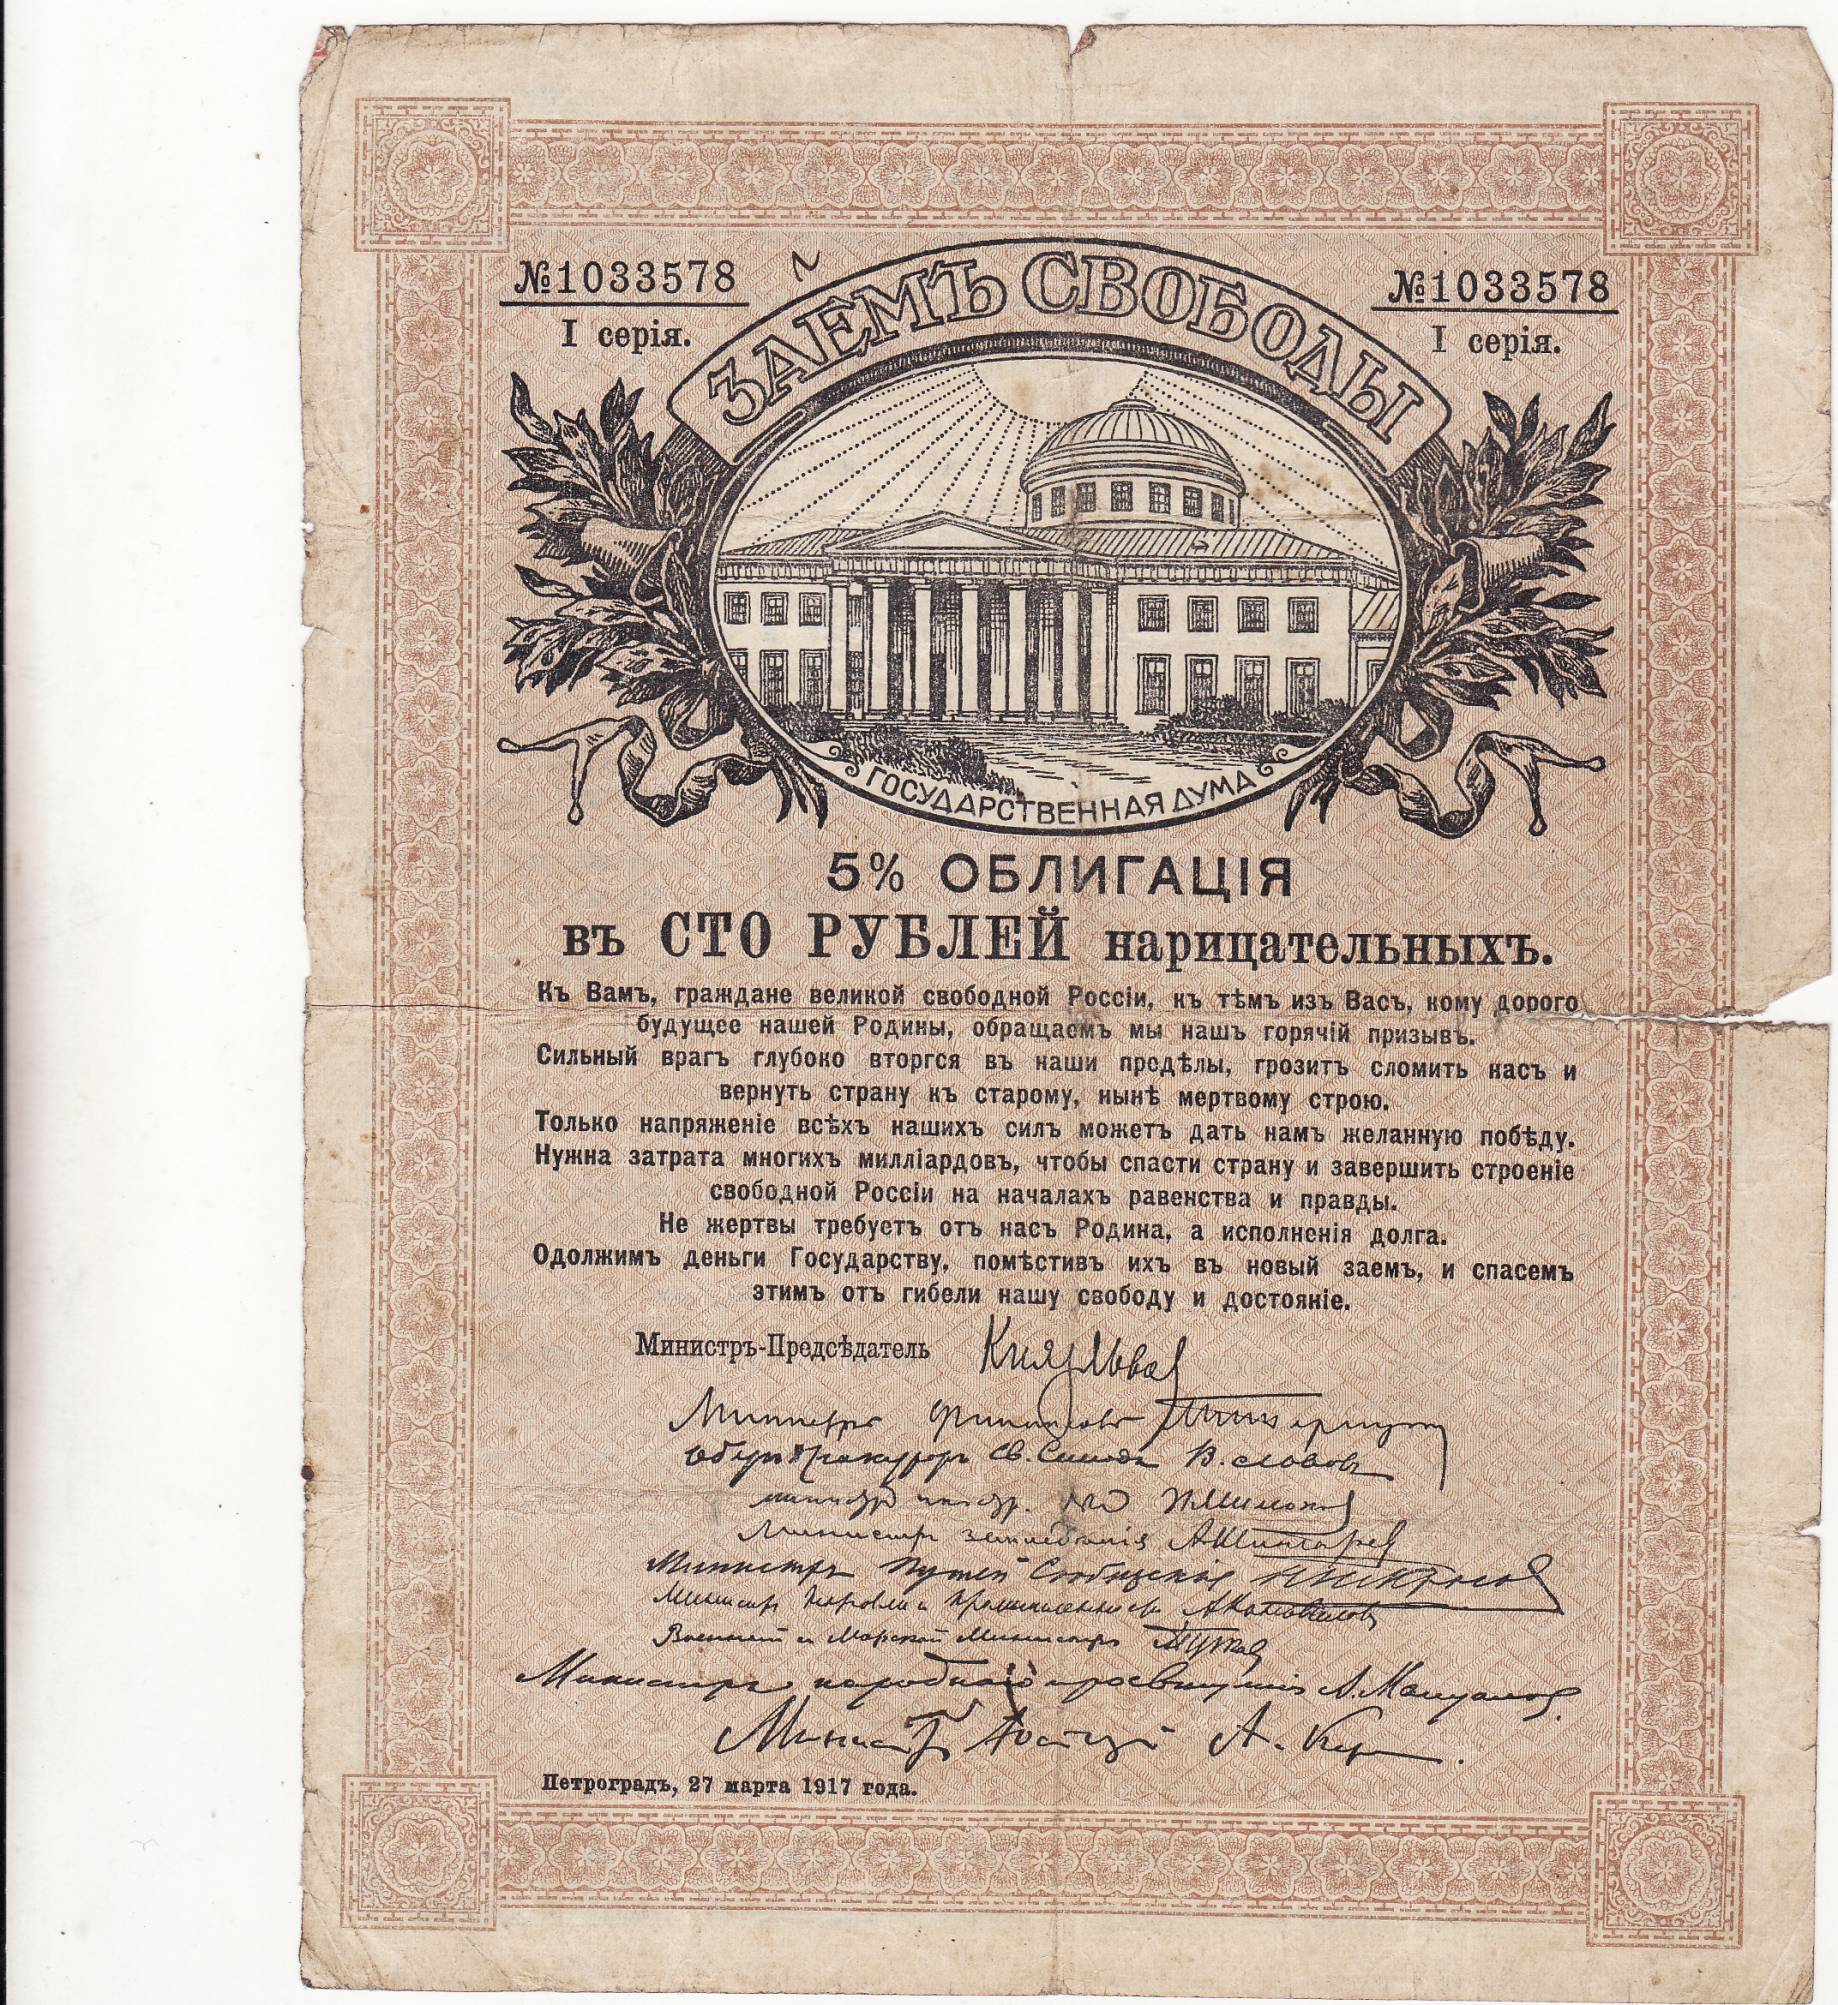 №1033578
I серія.
ЗАЕМЪ СВОБОДЫ
№1033578
I серія.
ГОСУДАРСТВЕННАЯ ДУМА
5% ОБЛИГАЦІЯ
въ СТО РУБЛЕЙ нарицательныхъ.
Къ Вамъ, граждане великой свободной Россіи, къ тѣмъ изъ Васъ, кому дорого
будущее нашей Родины, обращаемъ мы нашъ горячій призывъ.
Сильный врагъ глубоко вторгся въ наши предѣлы, грозитъ сломить насъ и
вернуть страну къ старому, нынѣ мертвому строю.
Только напряженіе всѣхъ нашихъ силъ можетъ дать намъ желанную побѣду.
Нужна затрата многихъ милліардовъ, чтобы спасти страну и завершить строеніе
свободной Россіи на началахъ равенства и правды.
Не жертвы требуетъ отъ насъ Родина, а исполненія долга.
Одолжимъ деньги Государству, помѣстивъ ихъ въ новый заемъ, и спасемъ
этимъ отъ гибели нашу свободу и достояніе.
Министръ-Предсѣдатель Князь Львов
Министръ финансовъ Терещенко
Оберъ Прокуроръ Св. Синода В. Львовъ
министръ иностр. дѣл П. Милюков
Министръ земледѣлія А. Шингарев
Министръ Путей Сообщенія Н. Некрасов
Министр Торговли и Промышленности А. Коноваловъ
Военный и Морской Министръ А. Гучков
Министръ народнаго просвѣщенія А. Мануилов.
Министръ Юстиціи А. Керенский.
Петроградъ, 27 марта 1917 года.